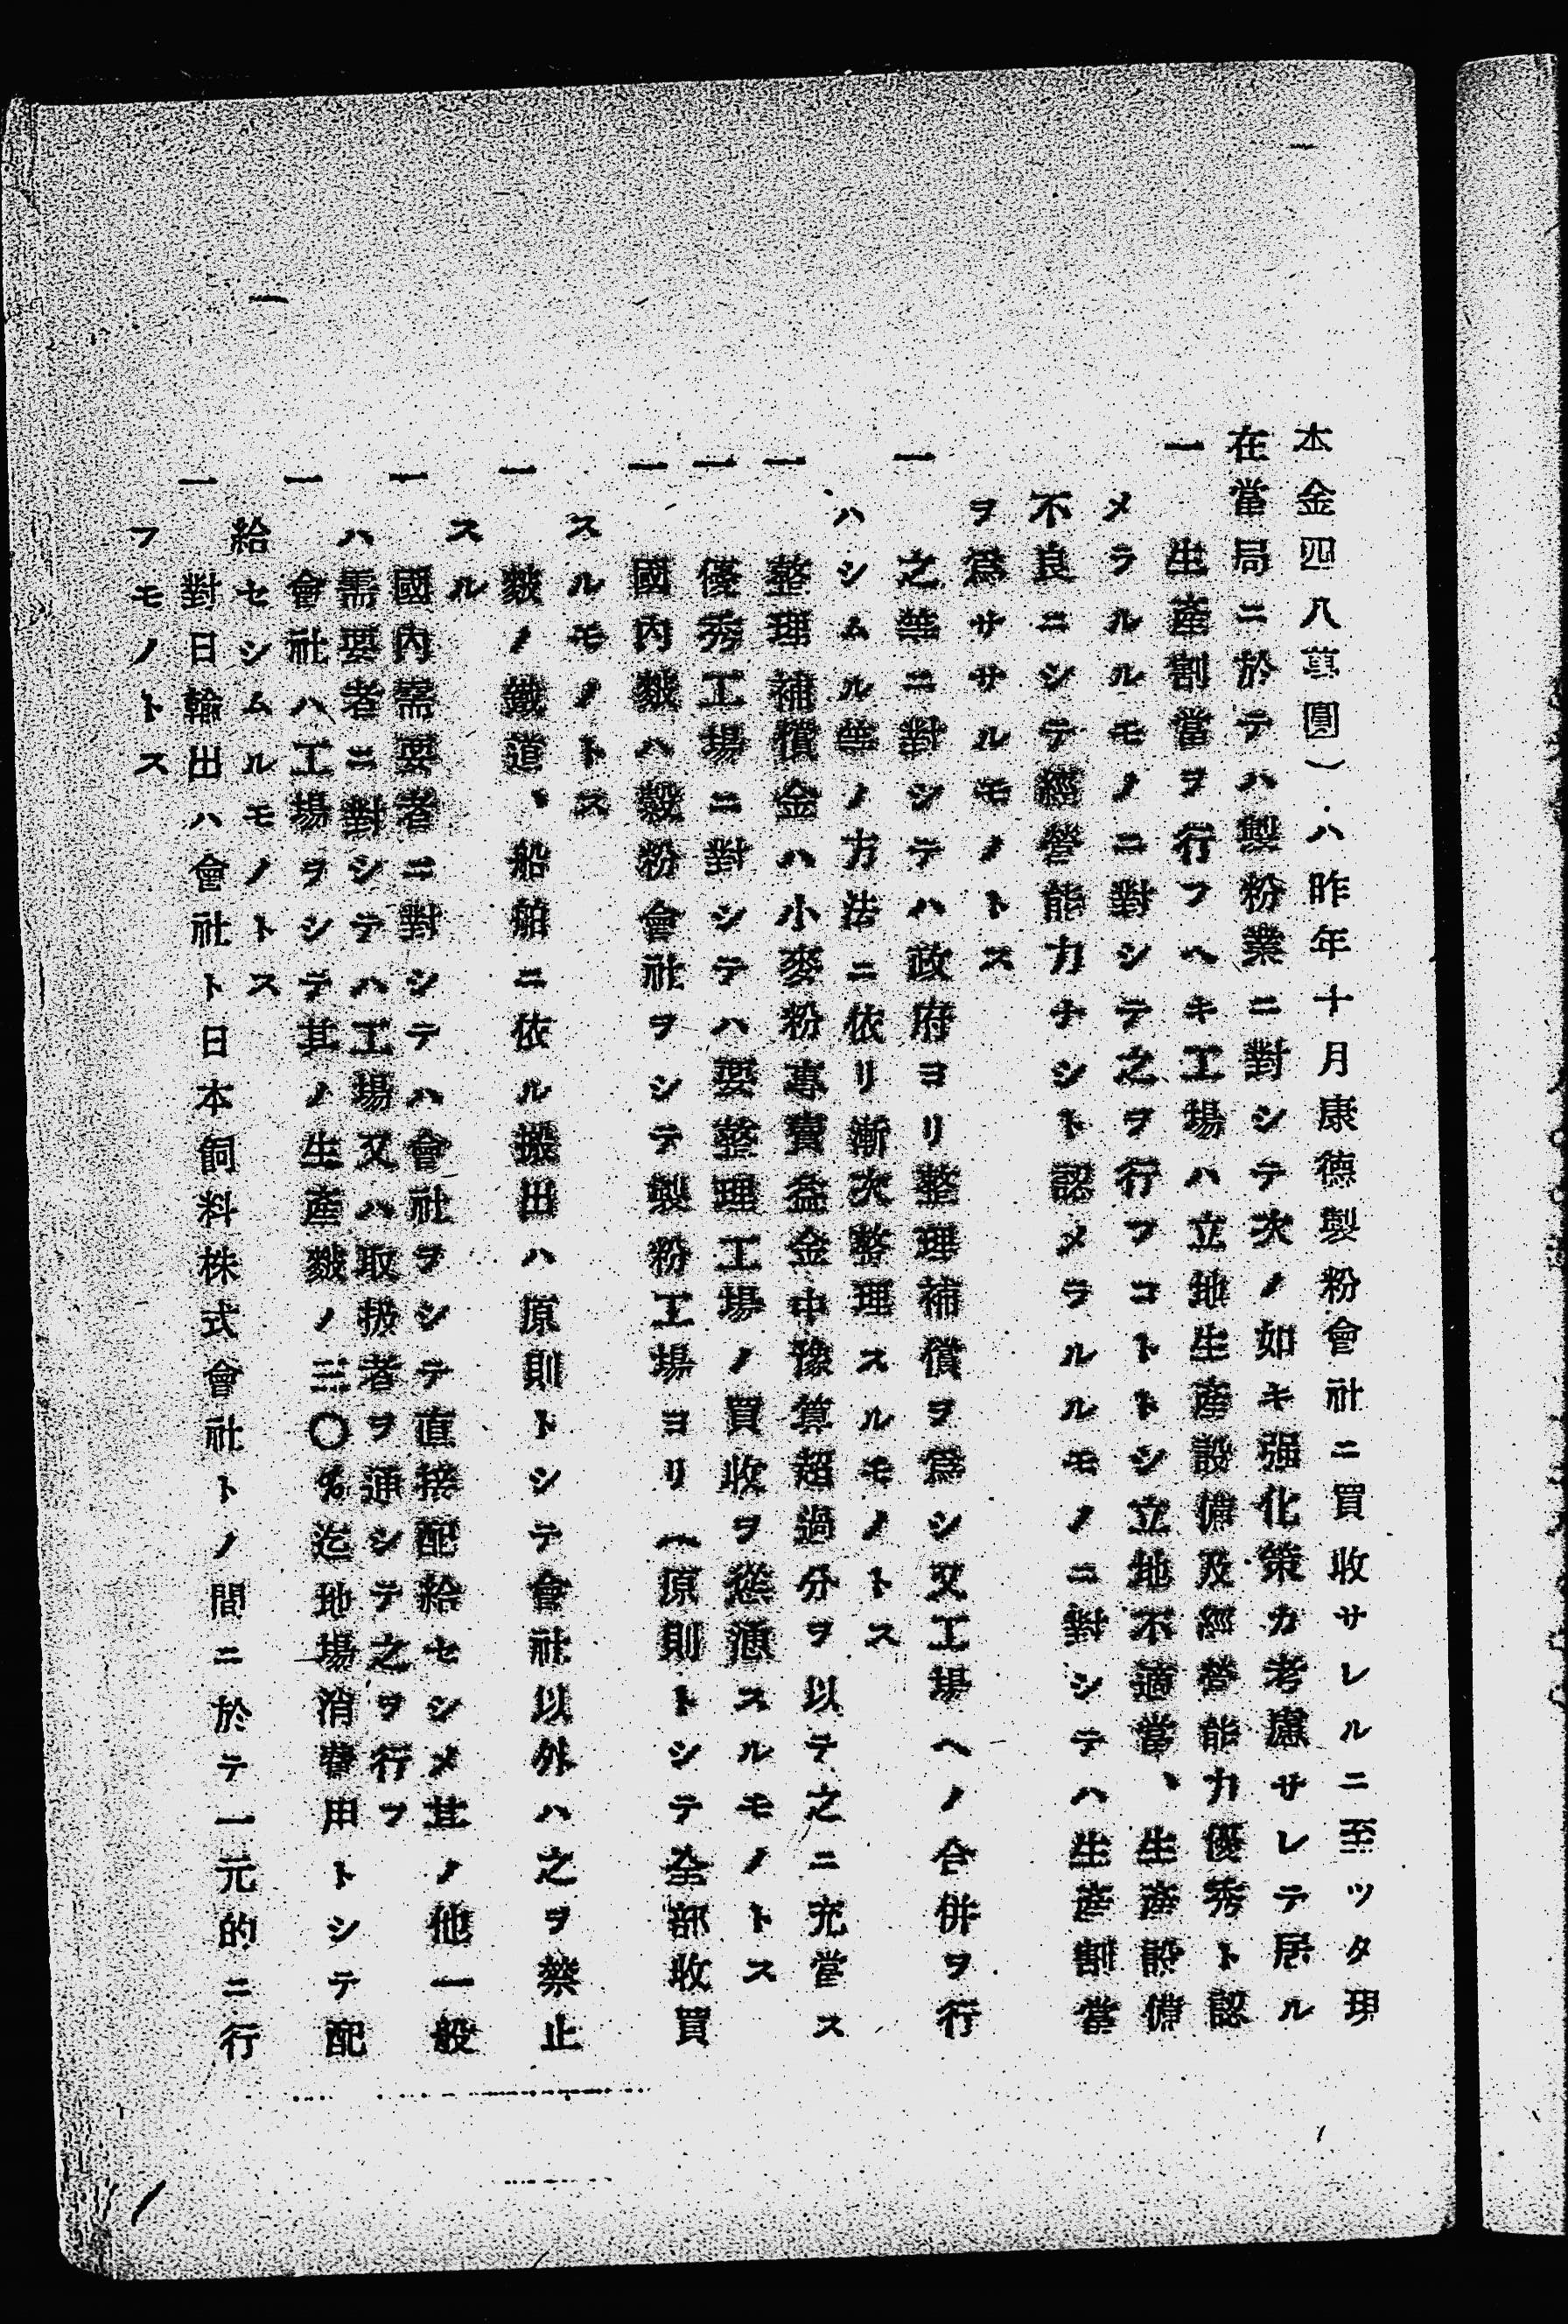 本金四八萬圓）ハ昨年十月康德製粉會社ニ買收サレルニ至ッタ現
在當局ニ於テハ製粉業ニ對シテ次ノ如キ强化策カ考慮サレテ居ル
一 生產割當ヲ行フヘキ工場ハ立地生產設備及經營能力優秀ト認
メラルルモノニ對シテ之ヲ行フコトトシ立地不適當、生產設備
不良ニシテ經營能力ナシト認メラルルモノニ對シテハ生產割當
ヲ爲ササルモノトス
一 之等ニ對シテハ政府ヨリ整理補償ヲ爲シ又工場ヘノ合併ヲ行
ハシムル等ノ方法ニ依リ漸次整理スルモノトス
一 整理補償金ハ小麥粉專賣益金中豫算超過分ヲ以テ之ニ充當ス
一 優秀工場ニ對シテハ要整理工場ノ買收ヲ慫慂スルモノトス
一 國內麩ハ穀粉會社ヲシテ製粉工場ヨリ（原則トシテ全部收買
スルモノトス
一 麩ノ鐵道、船舶ニ依ル搬出ハ原則トシテ會社以外ハ之ヲ禁止
スル
一 國內需要者ニ對シテハ會社ヲシテ直接配給セシメ其ノ他一般
ハ需要者ニ對シテハ工場又ハ取扱者ヲ通シテ之ヲ行フ
一 會社ハ工場ヲシテ其ノ生產麩ノ三〇％迄地場消費用トシテ配
給セシムルモノトス
一 對日輸出ハ會社ト日本飼料株式會社トノ間ニ於テ一元的ニ行
フモノトス